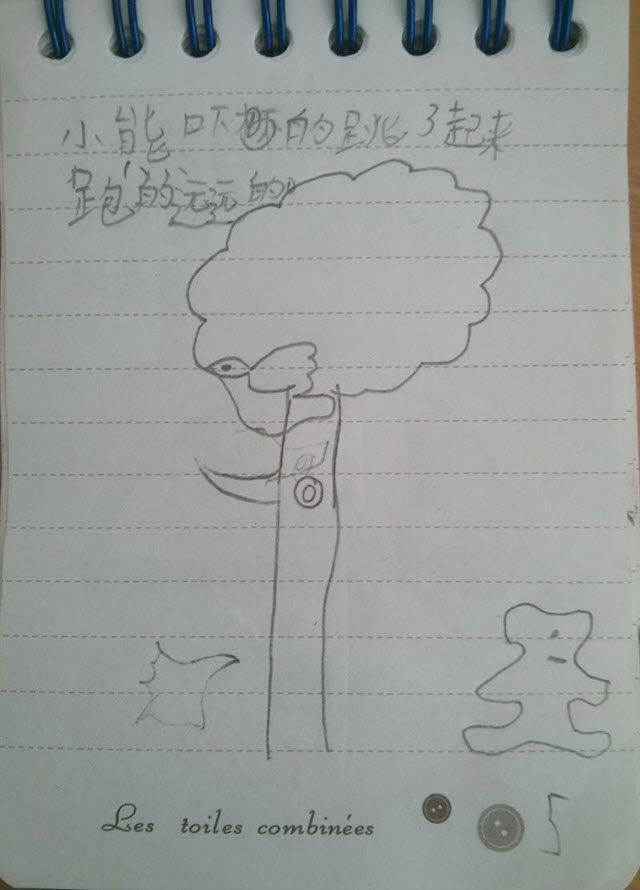 小能吓的跳了起来
跑的远远的
Les toiles combinées
5